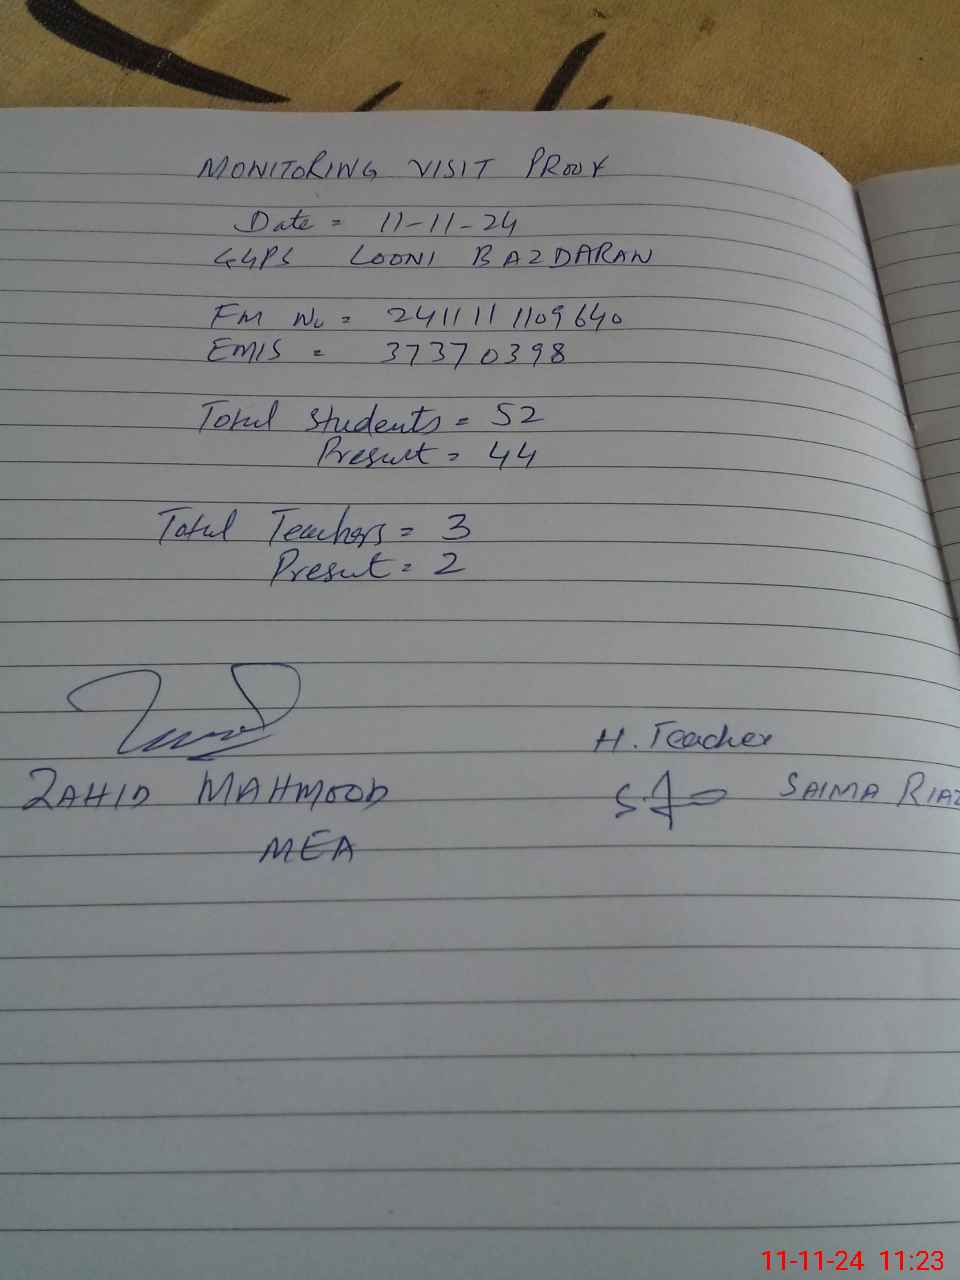 MONITORING VISIT PROOF
Date = 11-11-24
GGPS LOONI BAZDARAN
FM No = 2411111109640
EMIS = 37370398
Total Students = 52
Present = 44
Total Teachers = 3
Present = 2
H. Teacher
ZAHID MAHMOOD
SAIMA RIAZ
MEA
11-11-24 11:23